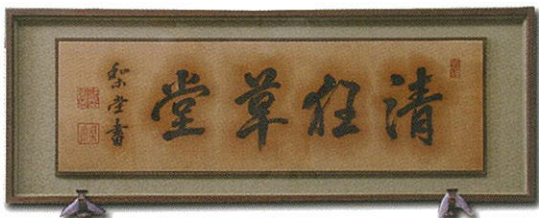 清狂草堂
梨堂書